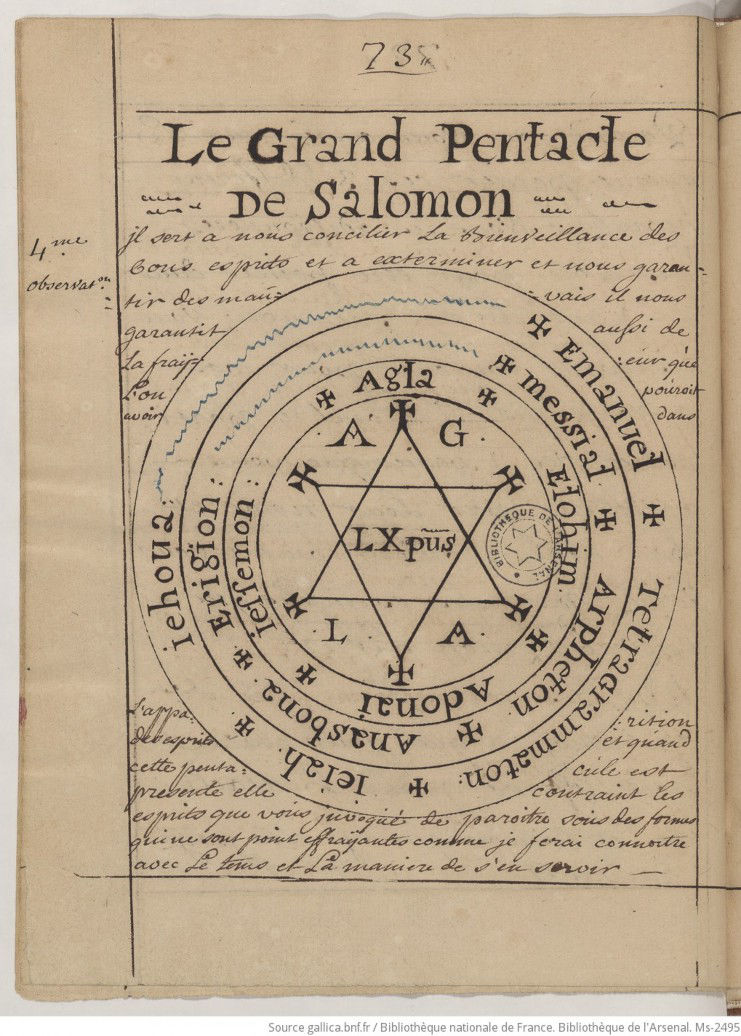 73
Le Grand Pentacle
De Salomon
4.me
observat.on
jl sert a nous concilier La Bienveillance des
bons esprits et a exterminer et nous garan-
tir des mau- vais il nous
garantit aussi de
La fraÿ- eur que
L'on pouroit
avoir dans
✠ Emanuel ✠ Tetragrammaton. ✠ Ieiah. ✠ iehoua:
✠ messiah ✠ Arpheton ✠ Anasbona ✠ Erigion:
✠ Agla ✠ Elohim. ✠ Adonai ✠ iessemon:
A G
LXpus
L A
BIBLIOTHÈQUE DE L'ARSENAL
L'appa: rition
des esprits et quand
cette penta: cule est
presente elle contraint les
esprits que vous juvoqué de paroitre sous des formes
qui ne sont point effraÿantes comme je ferai connoitre
avec Le tems et La maniere de s'en servoir
Source gallica.bnf.fr / Bibliothèque nationale de France. Bibliothèque de l'Arsenal. Ms-2495